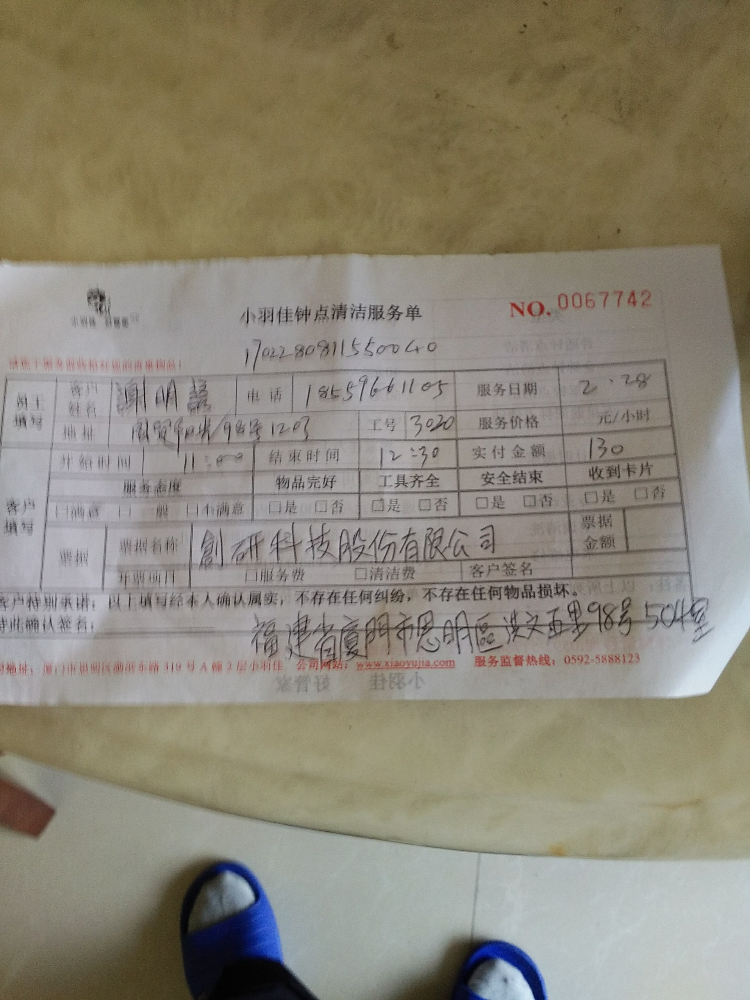 小羽佳 好管家
小羽佳钟点清洁服务单 NO. 0067742
1702280811550040
雇主填写 客户姓名 谢明 电话 18559661105 服务日期 2.28
地址 国贸阳光 1203 工号 3020 服务价格 元/小时
开始时间 11:00 结束时间 12:30 实付金额 130
客户填写 服务态度 物品完好 工具齐全 安全结束 收到卡片
□满意 □一般 □不满意 □是 □否 □是 □否 □是 □否 □是 □否
票据 票据名称 創研科技股份有限公司 票据金额
开票项目 □服务费 □清洁费 客户签名
客户特别承诺：以上填写经本人确认属实，不存在任何纠纷，不存在任何物品损坏。
特此确认签名：
福建省廈門市思明區洪文五里98号504室
司地址：厦门市思明区湖滨东路319号A幢2层小羽佳 公司网站：www.xiaoyujia.com 服务监督热线：0592-5888123